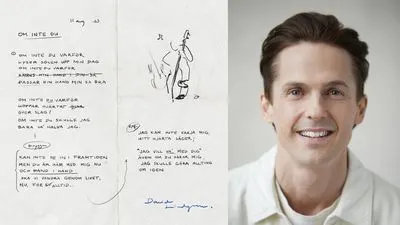 11 aug -23
OM INTE DU
OM INTE DU VARFÖR
LYSER SOLEN UPP MIN DAG
OM INTE DU VARFÖR
PASSAR DIN HAND I MIN SÅ BRA
OM INTE DU VARFÖR
HOPPAR HJÄRTAT
SLAG!
OM INTE DU SKULLE JAG
BARA VA' HALVA JAG.
KAN INTE SE IN I FRAMTIDEN
MEN DU ÄR HÄR MED MIG NU
OCH HAND I HAND
SKA VI VANDRA GENOM LIVET,
NU, FÖR ALLTID...
JAG KAN INTE VÄRJA MIG,
MITT HJÄRTA SÄGER:
"JAG VILL VA' MED DIG"
ÄVEN OM DU NEKAR MIG,
JAG SKULLE GÖRA ALLTING
OM IGEN.